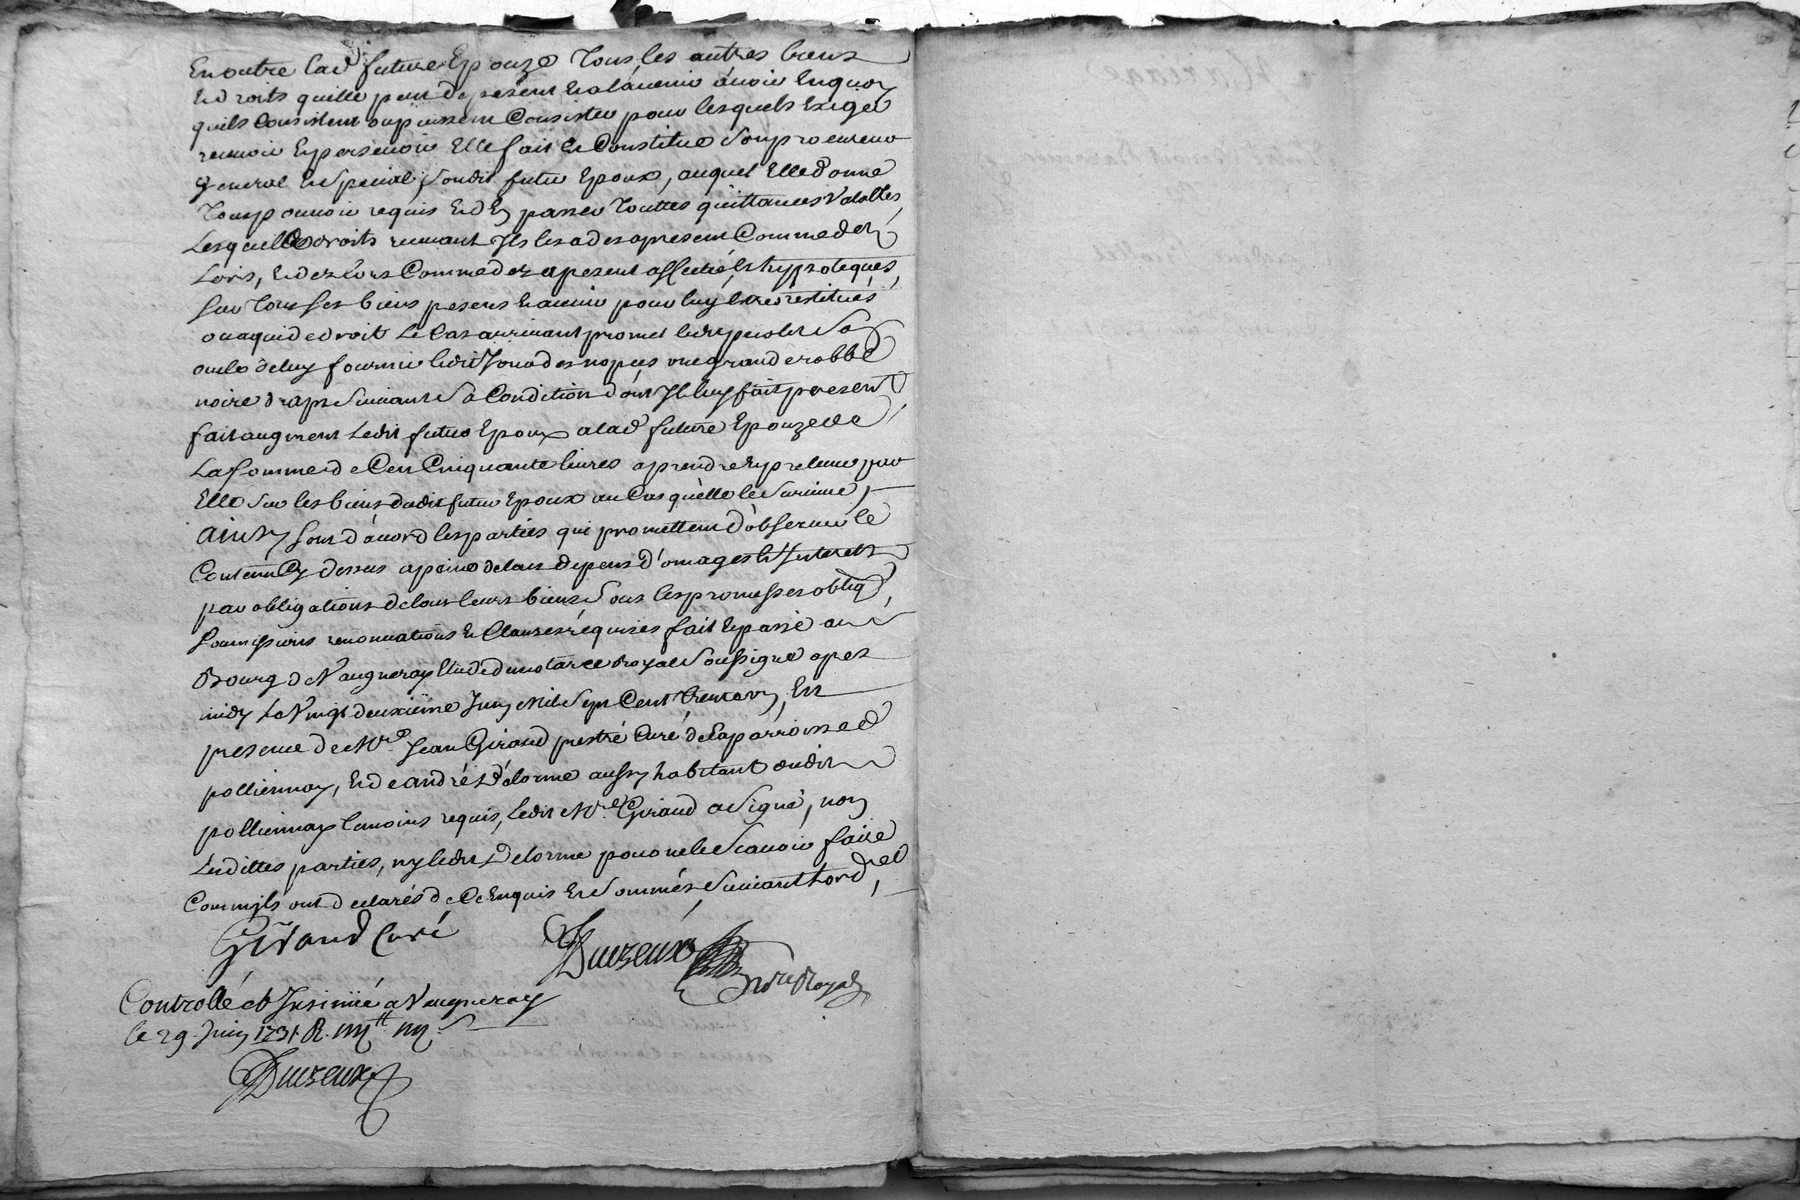 En outre lad future Epouze Tous les autres biens
Et droits quelle peut de present Et alavenir avoir En quoy
quils Consistent ou puissent Consister pour lesquels Exiger
recevoir Et persevoir Elle fait Et Constitue Son procureur
general Et Special, Sondit futur Epoux, auquel Elle donne
Tout pouvoir requis Et d'En passer Touttes quittances Valables,
Lesquells droits recevant Il les a des apresent Comme des
Lors, Et dez lors Comme dez apresent affectés, Et hypoteques,
Sur Tous ses biens presens Et avenir pour luy Etre restitués
ou a qui de droit Le Cas arrivant promet ledit
outre deluy fournir ledit Jour des nopces une grande robbe
noire drap Suivant Sa Condition dont Il luy fait present,
fait augment Ledit futur Epoux a lad future Epouze de
La Somme de Cent Cinquante livres a prendre Et prelever par
Elle Sur les biens dudit futur Epoux au Cas quelle le Survive,
ainsy Sont d'acord les parties qui promettent d'observer le
Contenu Cy dessus a peine de tous depens d'omages Et Interets
par obligations de tous leurs biens Sous les promesses obligd,
Soumissions renonciations Et Clauses requises fait Et passé au
Bourg de Vaugneray Etude du notaire Royal Soussigné apres
midy Le Vingt deuxiême Juin Mil Sept Cent trente un, En
presence de Mre. Jean Giraud prestre Curé de la parroisse de
pollionnay, Et de andré Delorme aussy habitant dudit
pollionnay temoins requis, Ledit Mre. Giraud a Signé, non
Lesdittes parties, ny ledit Delorme pour ne le Scavoir faire
Comm'ils ont declarés de Ce Enquis Et Sommés Suivant Lord,
Giraud Curé
Dacreux nore Royal
Controllé et Insinué a Vaugneray
le 29. Juin 1731. R.
Dacreux